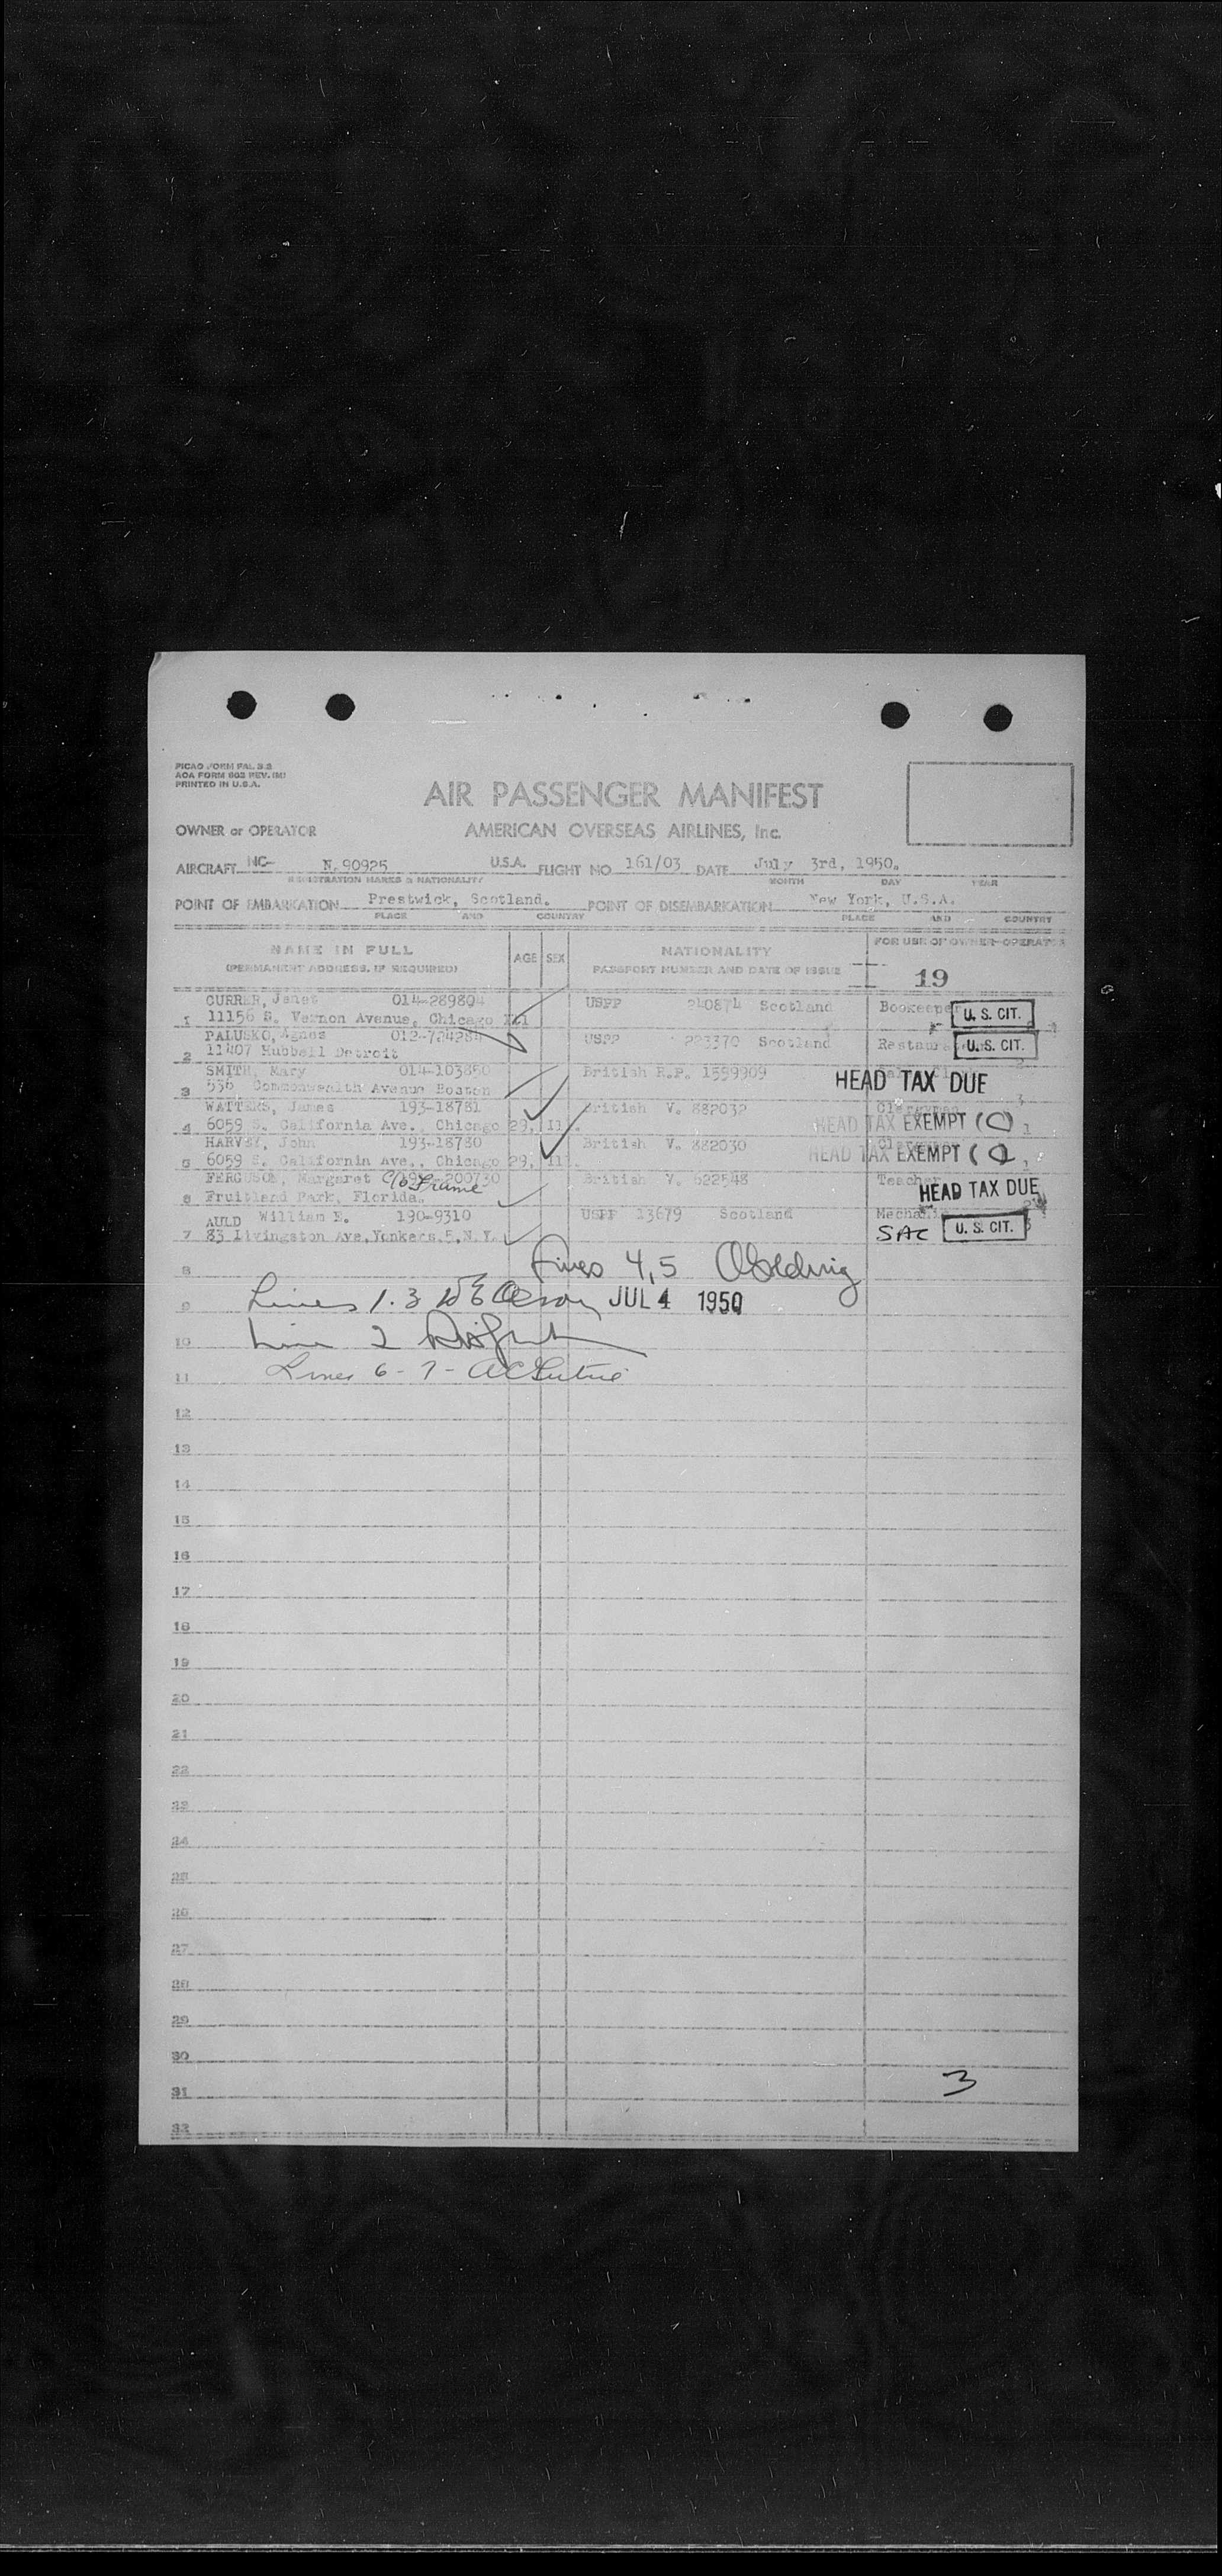 PICAO FORM FAL 3.3
AOA FORM 803 REV. (M)
PRINTED IN U.S.A.
AIR PASSENGER MANIFEST
OWNER or OPERATOR AMERICAN OVERSEAS AIRLINES, Inc.
AIRCRAFT NC- N.90925 U.S.A. FLIGHT NO 161/03 DATE July 3rd, 1950.
REGISTRATION MARKS & NATIONALITY MONTH DAY YEAR
POINT OF EMBARKATION Prestwick, Scotland. POINT OF DISEMBARKATION New York, U.S.A.
PLACE AND COUNTRY PLACE AND COUNTRY
NAME IN FULL AGE SEX NATIONALITY FOR USE OF OWNER-OPERATOR
(PERMANENT ADDRESS, IF REQUIRED) PASSPORT NUMBER AND DATE OF ISSUE 19
CURRER, Janet 014-289804 USPP 240874 Scotland Bookeeper
1 11156 S. Vernon Avenue, Chicago U. S. CIT.
PALUSKO, Agnes 012-724284 USPP 223370 Scotland
2 11407 Hubbell Detroit U. S. CIT.
SMITH, Mary 014-103850 British R.P. 1399909
3 556 Commonwealth Avenue Boston HEAD TAX DUE
WATTERS, James 193-18781 British V. 882032 Clergyman
4 6059 S. California Ave., Chicago 29, Ill. HEAD TAX EXEMPT
HARVEY, John 193-18780 British V. 882030 Clergyman
5 6059 S. California Ave., Chicago 29, Ill. HEAD TAX EXEMPT
FERGUSON, Margaret C/o Frame British V. 622548 Teacher
6 Fruitland Park, Florida. HEAD TAX DUE
AULD William 190-9310 USPP 13679 Scotland Mechanic
7 83 Livingston Ave, Yonkers, 5, N.Y. U. S. CIT.
8 Lines 4,5
9 Lines 1.3 JUL 4 1950
10 Line 2
11 Lines 6-7-
12
13
14
15
16
17
18
19
20
21
22
23
24
25
26
27
28
29
30
31 3
32